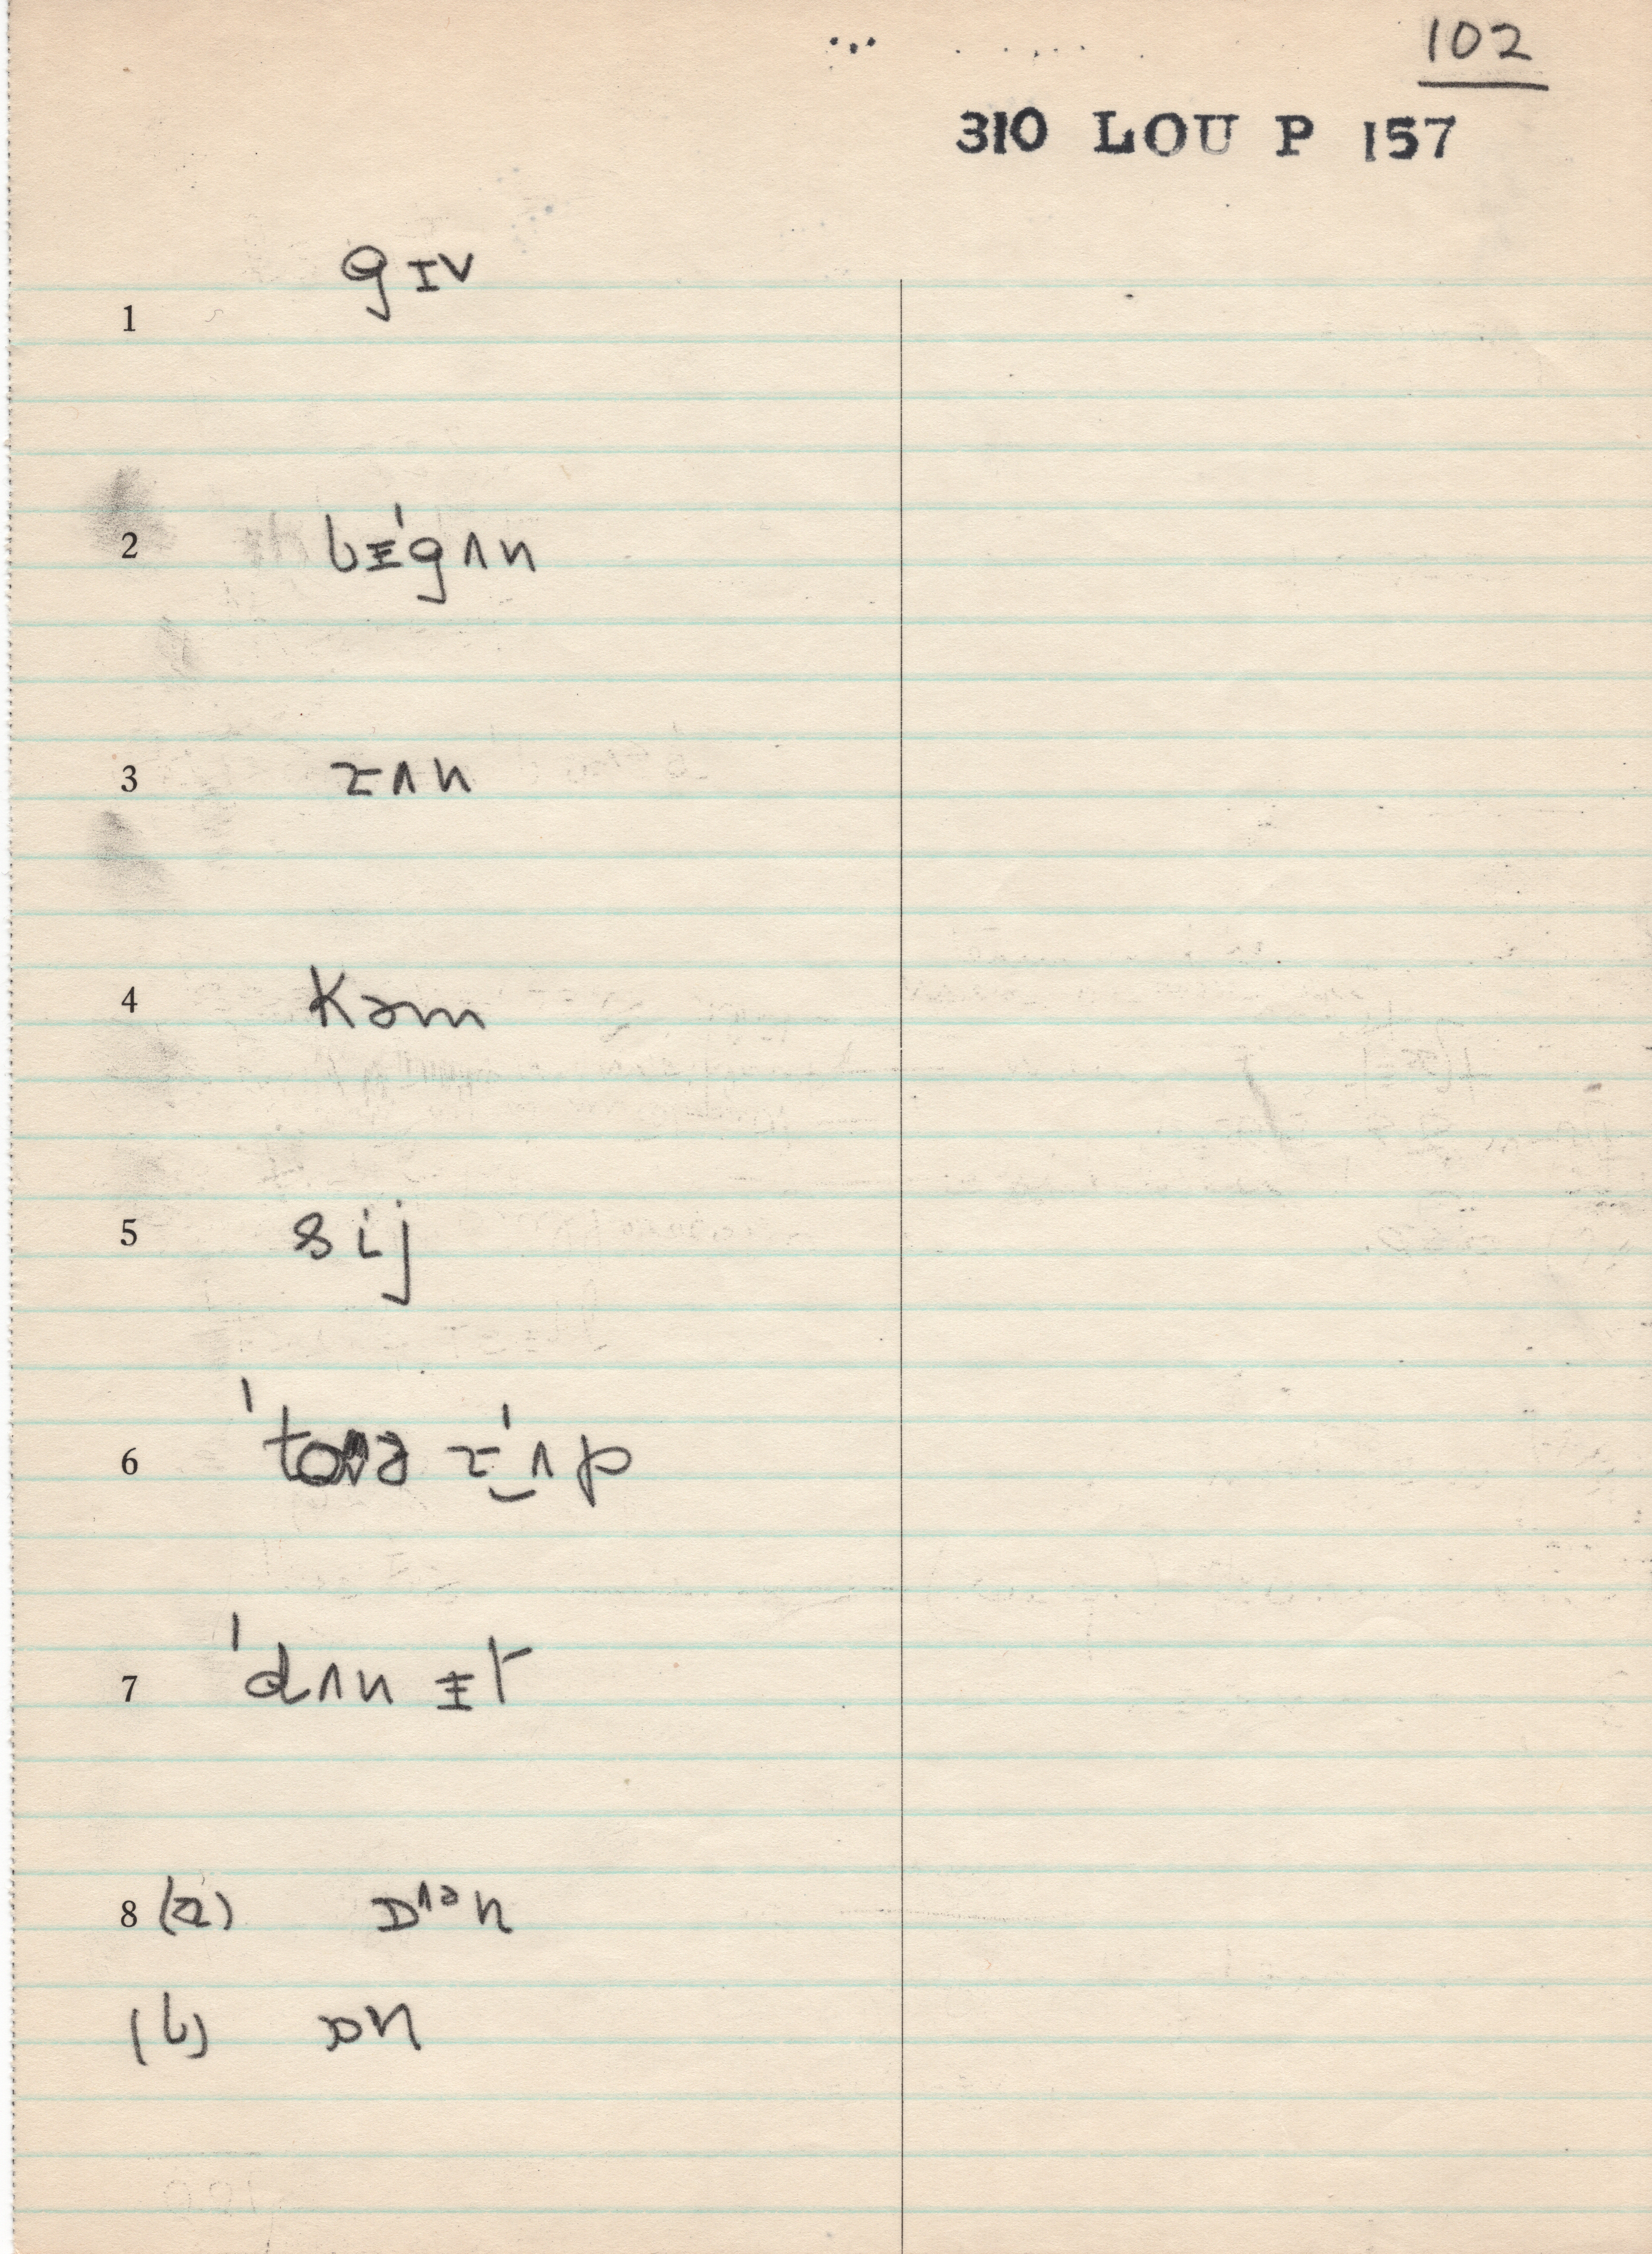 102
310 LOU P 157
1 gɪv
2 bᵻˈgʌn
3 ɪʌn
4 Kəm
5 sij
6 ˈtoɹə ɪˈ‿ʌp
7 ˈdʌn ᵻt
8 (a) ɒʌən
(b) ɒn